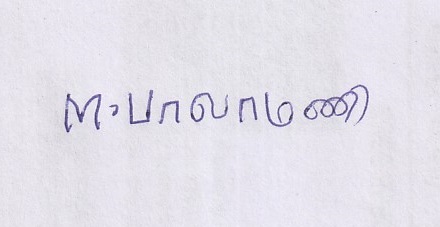 த.பாலாமணி